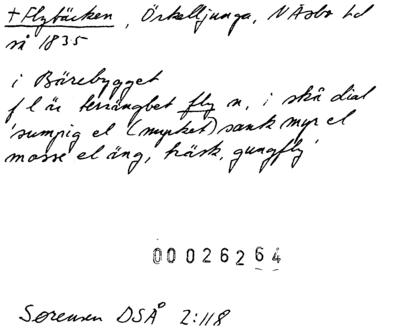 +Flybäcken, Örkelljunga, NÅsbo hd
så 1835
i Bärebygget
f l är terrängbet fly n, i skå dial
'sumpig el (mycket) sank myr el
mosse el äng, träsk, gungfly'
00026264
Sørensen DSÅ 2:118